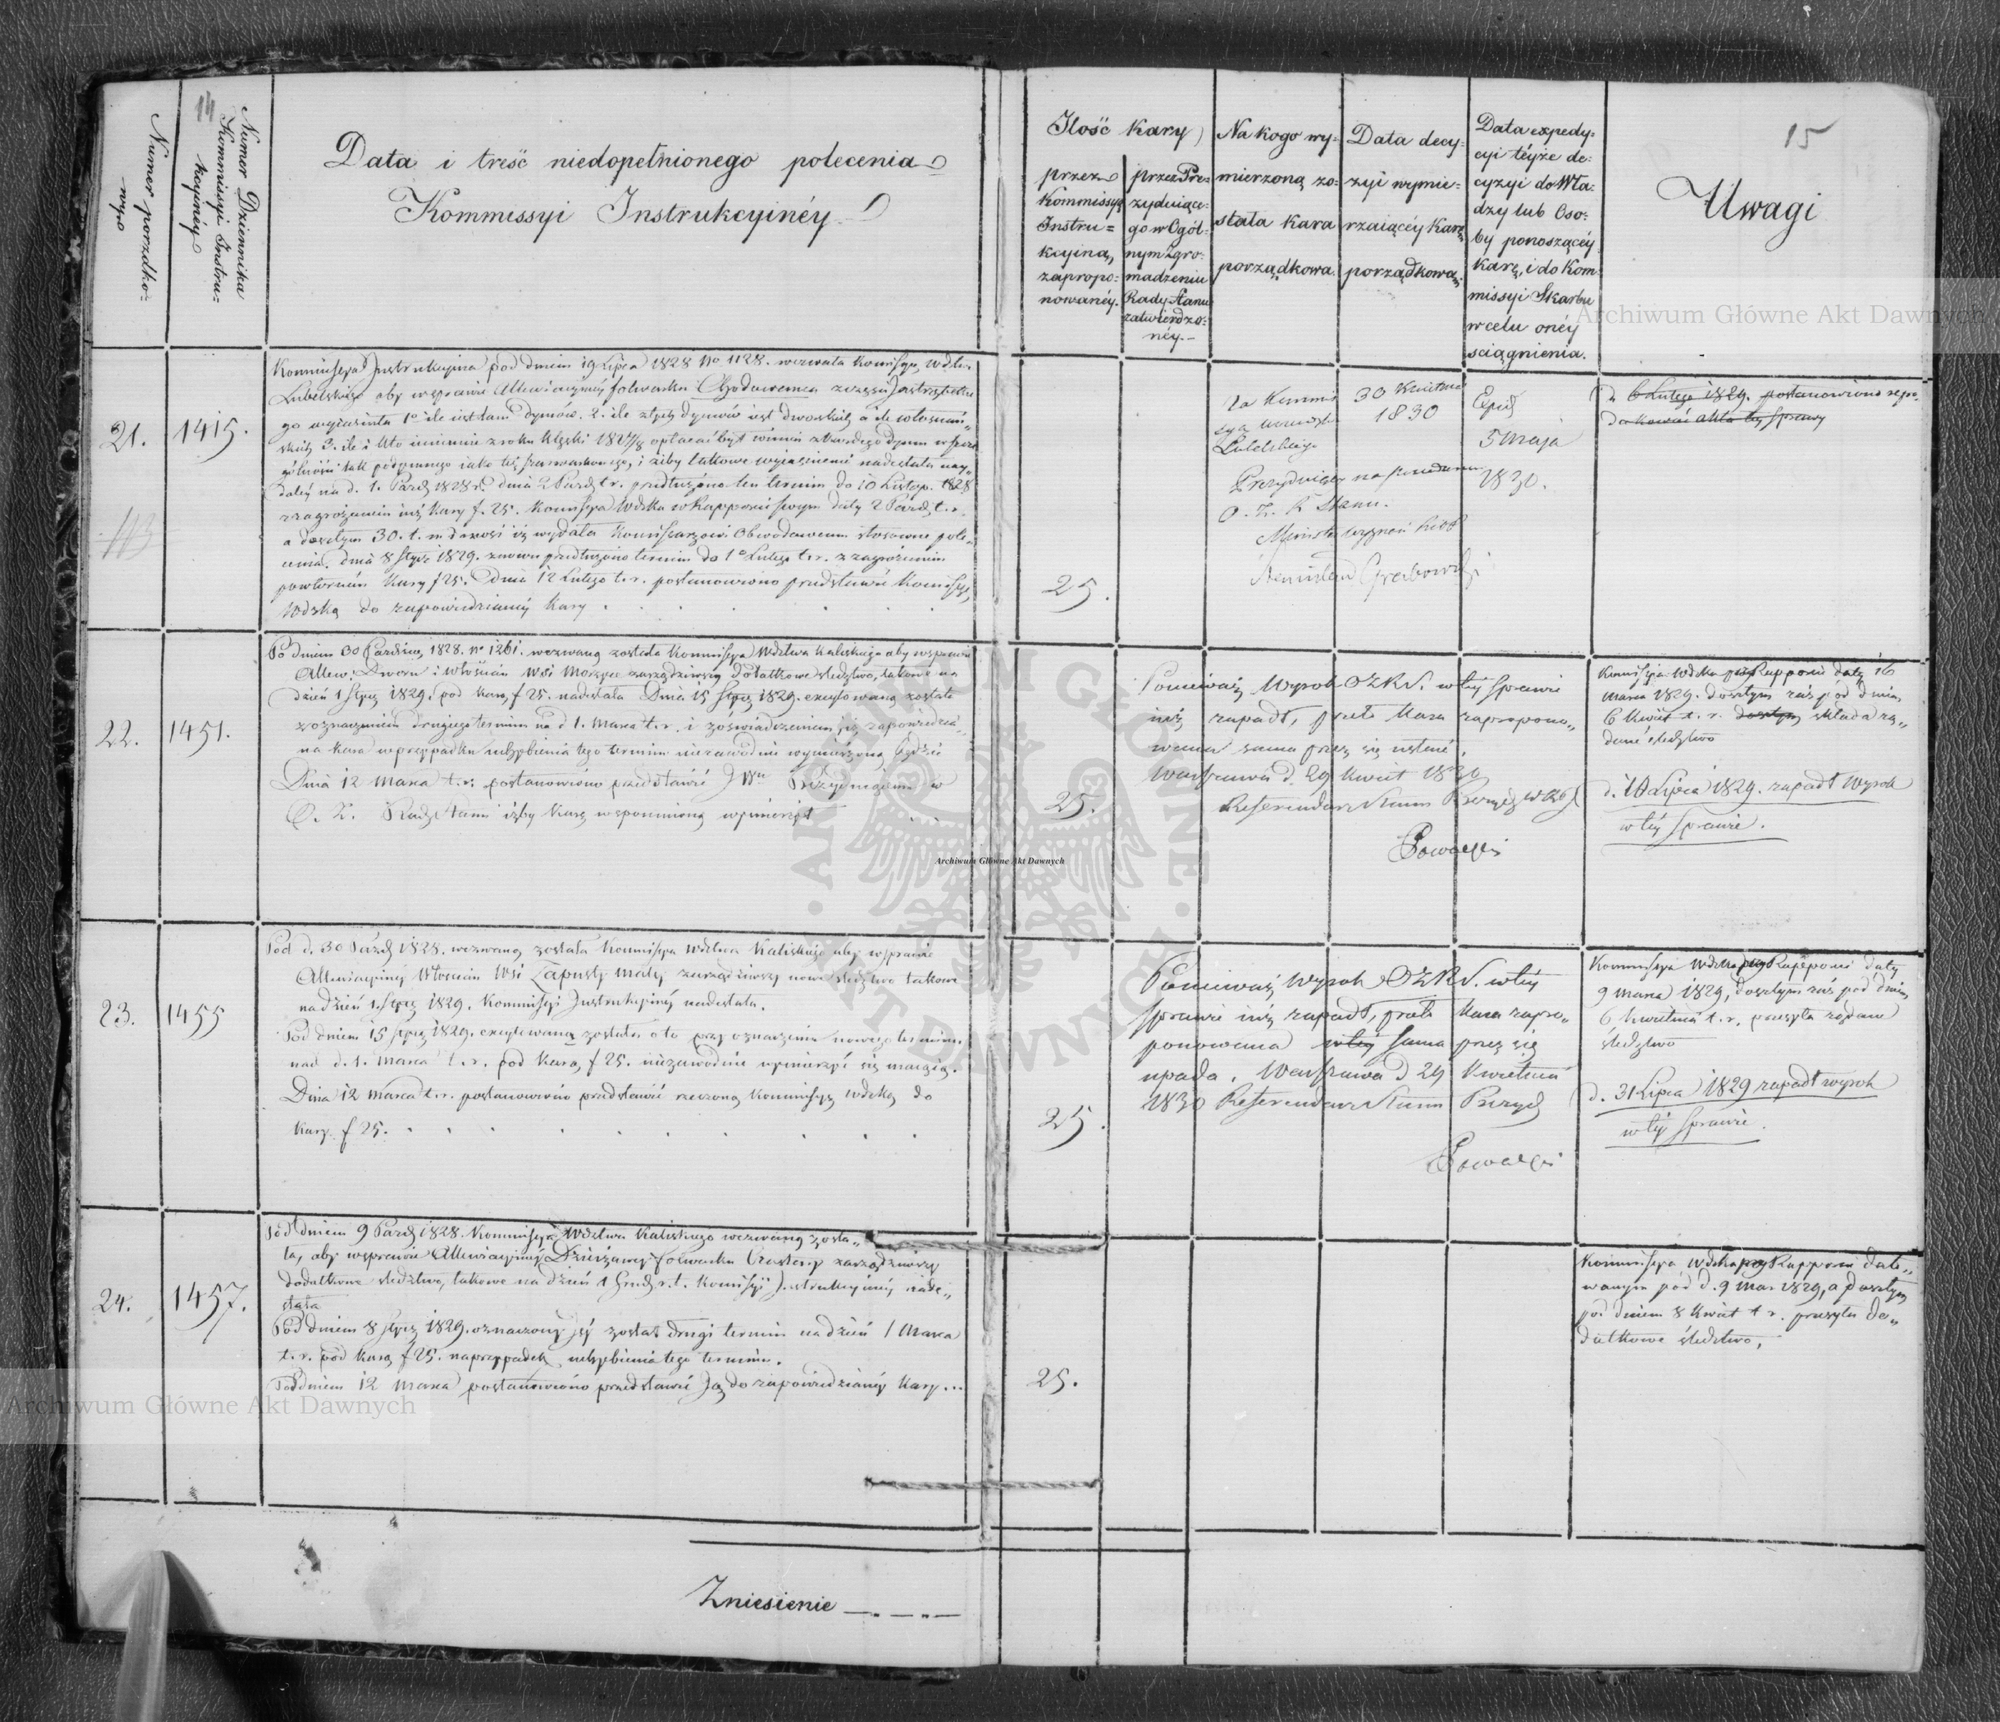 14
Numer porządko-
wyo
Numer Dziennika
Kommissyi Instru-
kcyinéy
Data i treść niedopełnionego polecenia
Kommissyi Instrukcyinéy
15
Ilość kary
przez
Kommissyą
Instru=
kcyiną,
zapropo-
nowanéy.
przez Pre-
zyduiące-
go w Ogól-
nym Zgro-
madzeniu
Rady Stanu
zatwierdzo-
néy.
Na kogo wy-
mierzoną zo-
stała kara
porządkowa.
Data decy-
zyi wymie-
rzaiącéy Karę
porządkową
Data expedy-
cyi téyże de-
cyzyi do Wła-
dzy lub Oso-
by ponoszącéy
karę, i do Kom
missyi Skarbu
w celu onéy
sciągnienia.
Uwagi
21.
1415.
Kommissya Instrukcyina pod dniem 19 Lipca 1828 No 1128. wezwała Komisyę Wdtwa
Lubelskiego aby w sprawie Allewiacyinéy folwarku
go wyiaśniła 1o ile iest tam dymów. 2. ile z tych dymów iest dworskich a ile włościań-
skich 3. ile i kto imiennie z roku klęski 1827/8 opłacać był winien z każdego dymu w szcze
gólności tak podymnego iako też szarwarkowego, i żeby takowe wyiaśnienie nadesłała nay-
daléy na d. 1. Paźdz 1828 r. dnia 2 Paźdz t. r. przedłużono ten termin do 10 Listop. 1828
z zagrożeniem iuż kary f. 25. Komisya Wdzka w Rapporcie swym daty 2 Paźdz. t. r.
a doszłym 30. t. m donosi iż wydała Komissarzowi Obwodowemu stosowne pole-
cenia. dnia 8 Stycz 1829. znowu przedłużono termin do 1o Lutego t. r. z zagrożeniem
powtórném kary f 25. Dnia 12 Lutego t. r. postanowiono przedstawić Komisyę
Wdzką do zapowiedzianéy kary
113
25.
Na Kommis
syą
Lubelskiego
30 Kwietnia
1830
Exped
5 Maja
1830.
Prezyduiący na posiedzeniu
O. Z. R Stanu.
Stanisław Grabowski
d. 6 Lutego 1829. postanowiono repro-
dukować akta téy sprawy
22.
1451.
Po dniem 30 Paździer, 1828. No 1261. wezwaną została Kommissya Wdztwa Kaliskiego aby w sprawie
Allew. Dworu i włościan wsi Morzyce zarządziwszy dodatkowe śledztwo, takowe na
dzień 1 Stycz 1829. pod karą f 25. nadesłała Dnia 15 Stycz 1829. excytowaną została
z oznaczeniem drugiego terminu na d 1. Marca t. r. i z oświadczeniem, iż zapowiedzia-
na kara w przypadku uchybienia tego terminu niezawodnie wymierzoną będzie
Dnia 12 Marca t. r. postanowiono przedstawić JWu Prezyduiącemu w
O. Z. Rady Stanu iżby karę wspomnioną wymierzył
25.
Ponieważ Wyrok OZRS. w téy sprawie
iuż zapadł, przeto kara zapropono-
wana sama przez się ustaie.
Warszawa d. 29 Kwiet 1830
Referendarz Stanu
Komisya Wdzka przy Rapporcie daty 16
Marca 1829. doszłym zaś pod dniem
6 Kwiet t. r. doszłym składa żą-
dane śledztwo
d. 10 Lipca 1829. zapadł Wyrok
w téy sprawie.
23.
1455
Pod d. 30 Paźdz 1828. wezwaną została Kommissya Wdztwa Kaliskiego aby w sprawie
Allewiacyinéy Włościan Wsi Zapusty małéy zarządziwszy nowe śledztwo takowe
na dzień 1 Stycz 1829. Kommissyi Instrukcyinéy nadesłała.
Pod dniem 15 Stycz 1829. excytowaną została o to przy oznaczeniu nowego terminu
na d. 1. Marca t. r. pod karą f 25. niezawodnie wymierzyć się maiącą.
Dnia 12 Marca t. r. postanowiono przedstawić rzeczoną Kommissyę Wdzką do
kary f 25.
25.
Ponieważ Wyrok OZRS. w téy
sprawie iuż zapadł, przeto kara zapro-
ponowana w téy sama przez się
upada. Warszawa d 29 Kwietnia
1830 Referendarz Stanu Prezyd
Kommissya Wdzka przy Rapporcie daty
9 Marca 1829, doszłym zaś pod dniem
6 Kwietnia t. r. przesyła żądane
śledztwo
d. 31 Lipca 1829 zapadł wyrok
w téy sprawie.
24.
1457.
Pod dniem 9 Paźdz 1828. Kommissya Wdztwa Kaliskiego wezwaną zosta-
ła, aby w sprawie Allewiacyinéy Dzierżawcy folwarku zarządziwszy
dodatkowe śledztwo, takowe na dzień 1 Grudz r. t. Komisyi Instrukcyinéy nade-
słała
Pod dniem 8 Stycz 1829. oznaczony iéy został drugi termin na dzień 1 Marca
t. r. pod karą f 25. na przypadek uchybienia tego terminu.
Pod dniem 12 Marca postanowiono przedstawić Ją do zapowiedzianéy kary...
25.
Kommissya Wdzka przy Rapporcie dato-
wanym pod d. 9 Mar. 1829, a doszłym
pod dniem 8 Kwiet t r. przesyła do-
datkowe śledztwo.
Zniesienie
Archiwum Główne Akt Dawnych
Archiwum Główne Akt Dawnych
Archiwum Główne Akt Dawnych
ARCHIWUM GŁÓWNE AKT DAWNYCH